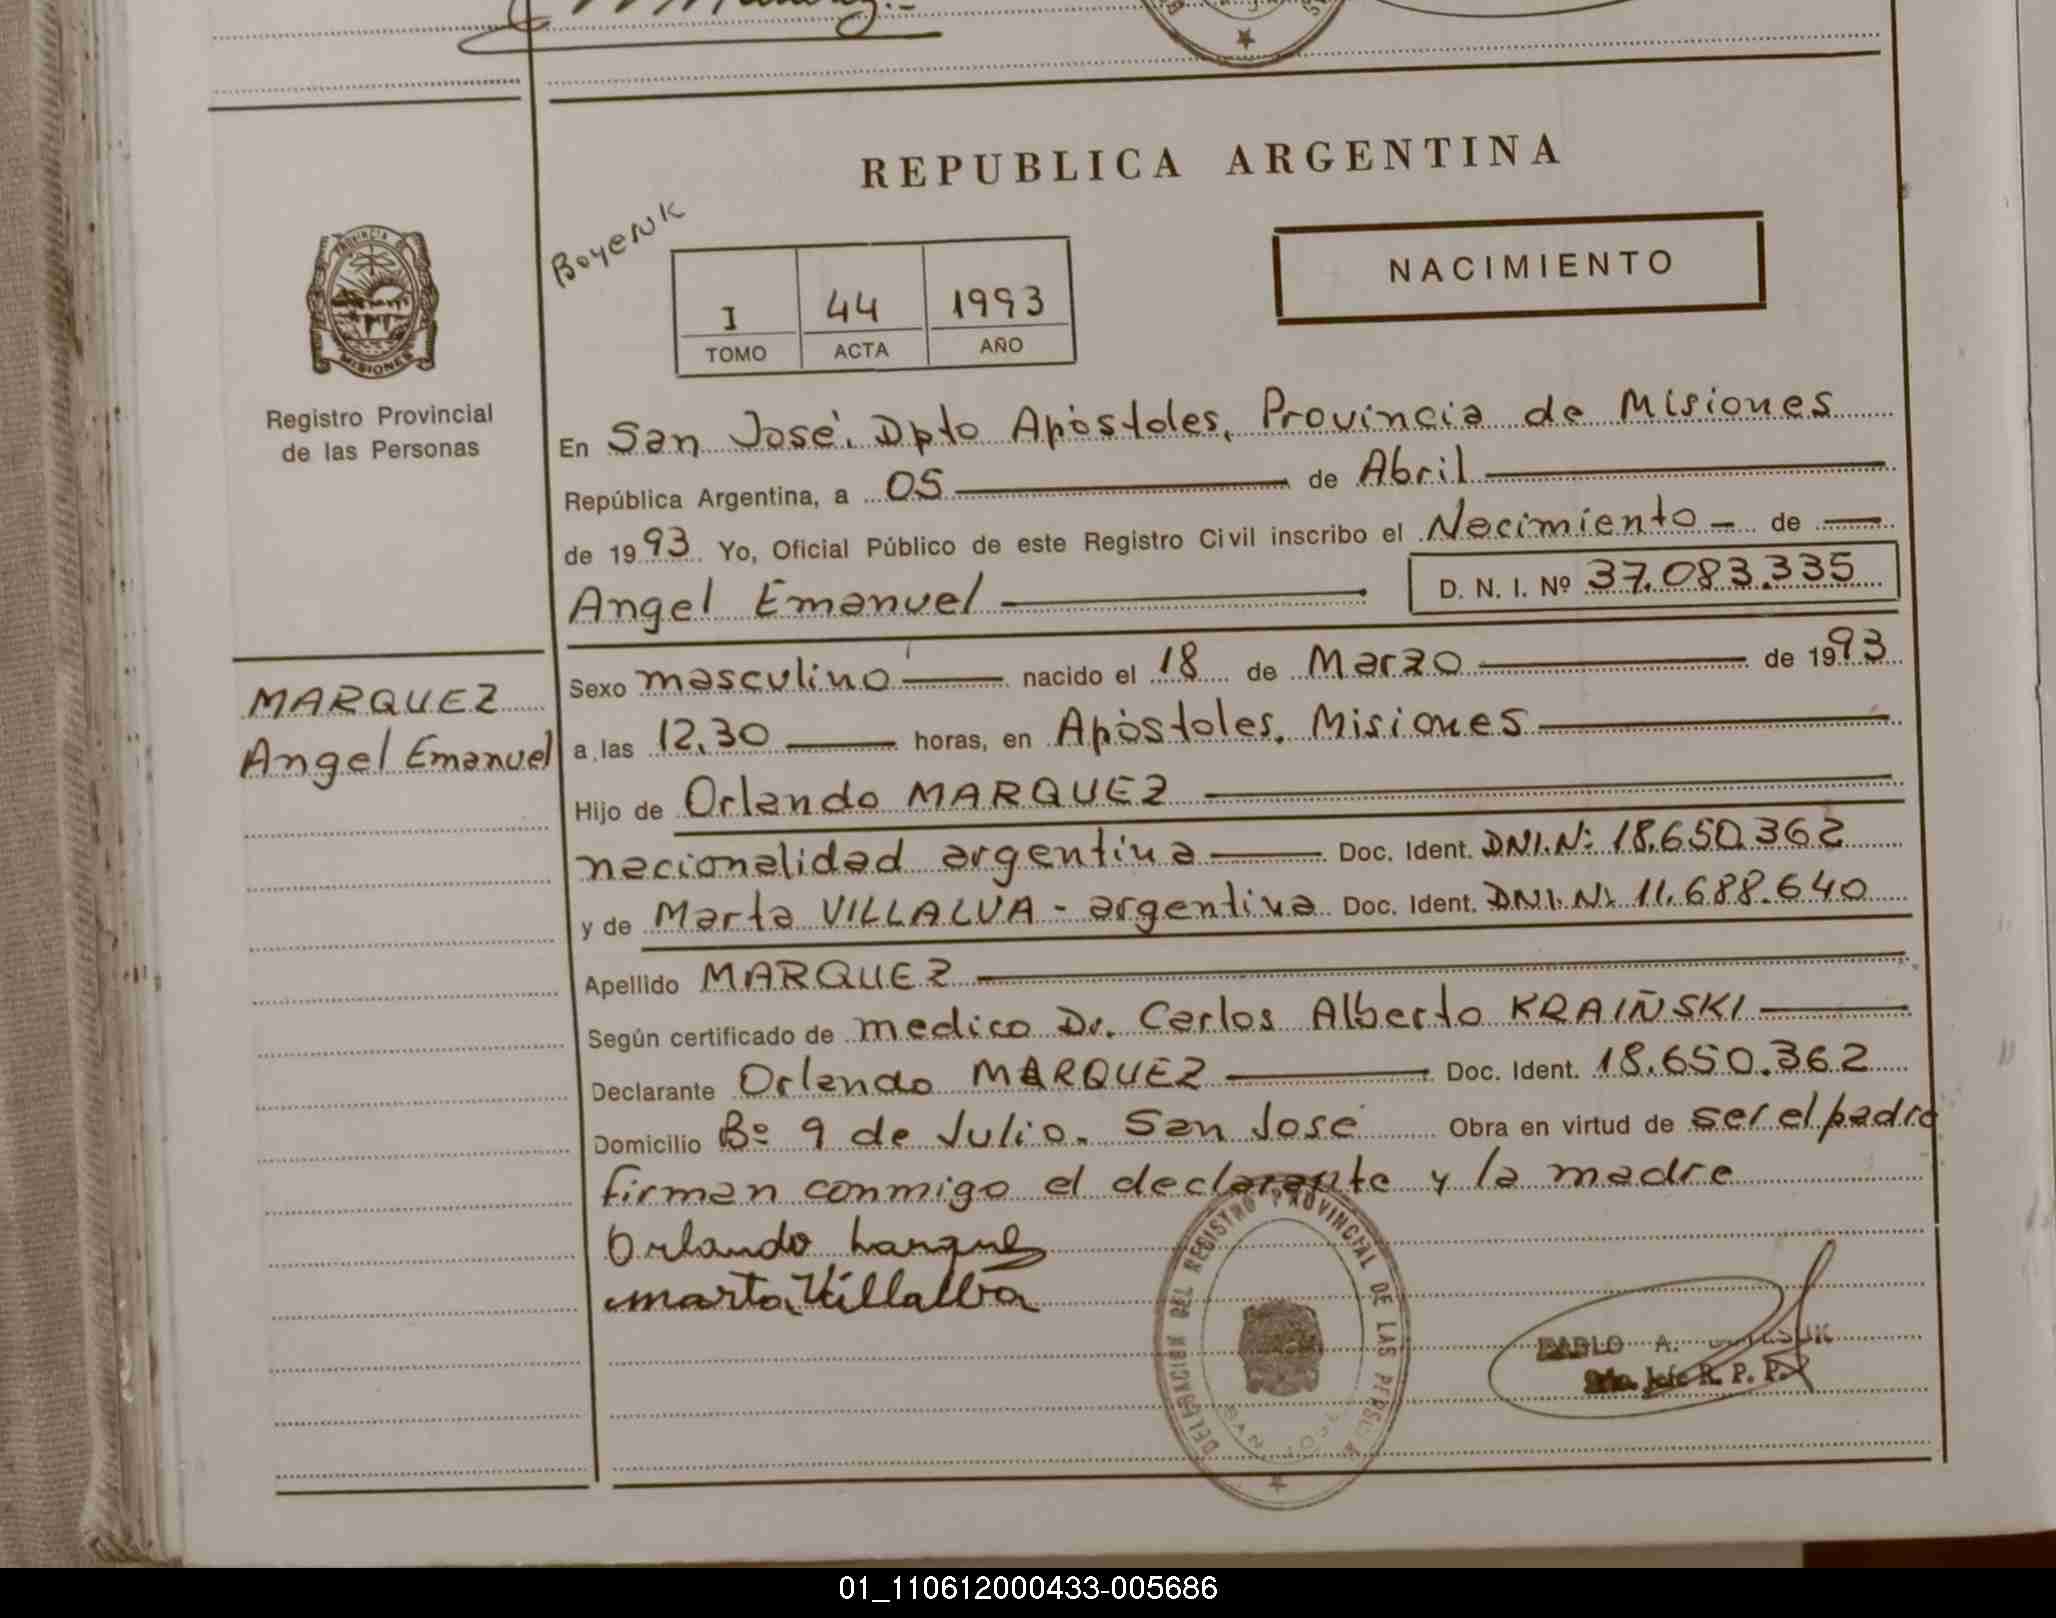 REPUBLICA ARGENTINA
Boyeruk
I 44 1993
TOMO ACTA AÑO
NACIMIENTO
PROVINCIA DE
MISIONES
Registro Provincial
de las Personas
En San José. Dpto Apóstoles, Provincia de Misiones
República Argentina, a 05 de Abril
de 1993 Yo, Oficial Público de este Registro Civil inscribo el Nacimiento - de
Angel Emanuel D. N. I. Nº 37.083.335
MARQUEZ
Angel Emanuel
Sexo masculino nacido el 18 de Marzo de 1993
a las 12,30 horas, en Apóstoles, Misiones
Hijo de Orlando MARQUEZ
nacionalidad argentina Doc. Ident. DNI.Nº 18.650.362
y de Marta VILLALVA - argentina Doc. Ident. DNI.Nº 11.688.640
Apellido MARQUEZ
Según certificado de medico Dr. Carlos Alberto KRAIÑSKI
Declarante Orlando MARQUEZ Doc. Ident. 18.650.362
Domicilio Bº 9 de Julio. San José Obra en virtud de ser el padre
firman conmigo el declarante y la madre
Orlando Marquez
Marta Villalba
DELEGACION DEL REGISTRO PROVINCIAL DE LAS PERSONAS
SAN JOSE
PABLO A.
Jefe R. P. P.
01_110612000433-005686